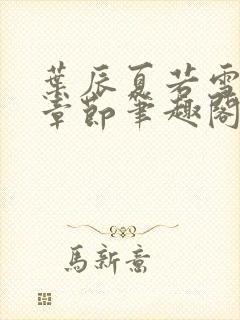 葉辰夏若雪
章節筆趣閣
馬新意